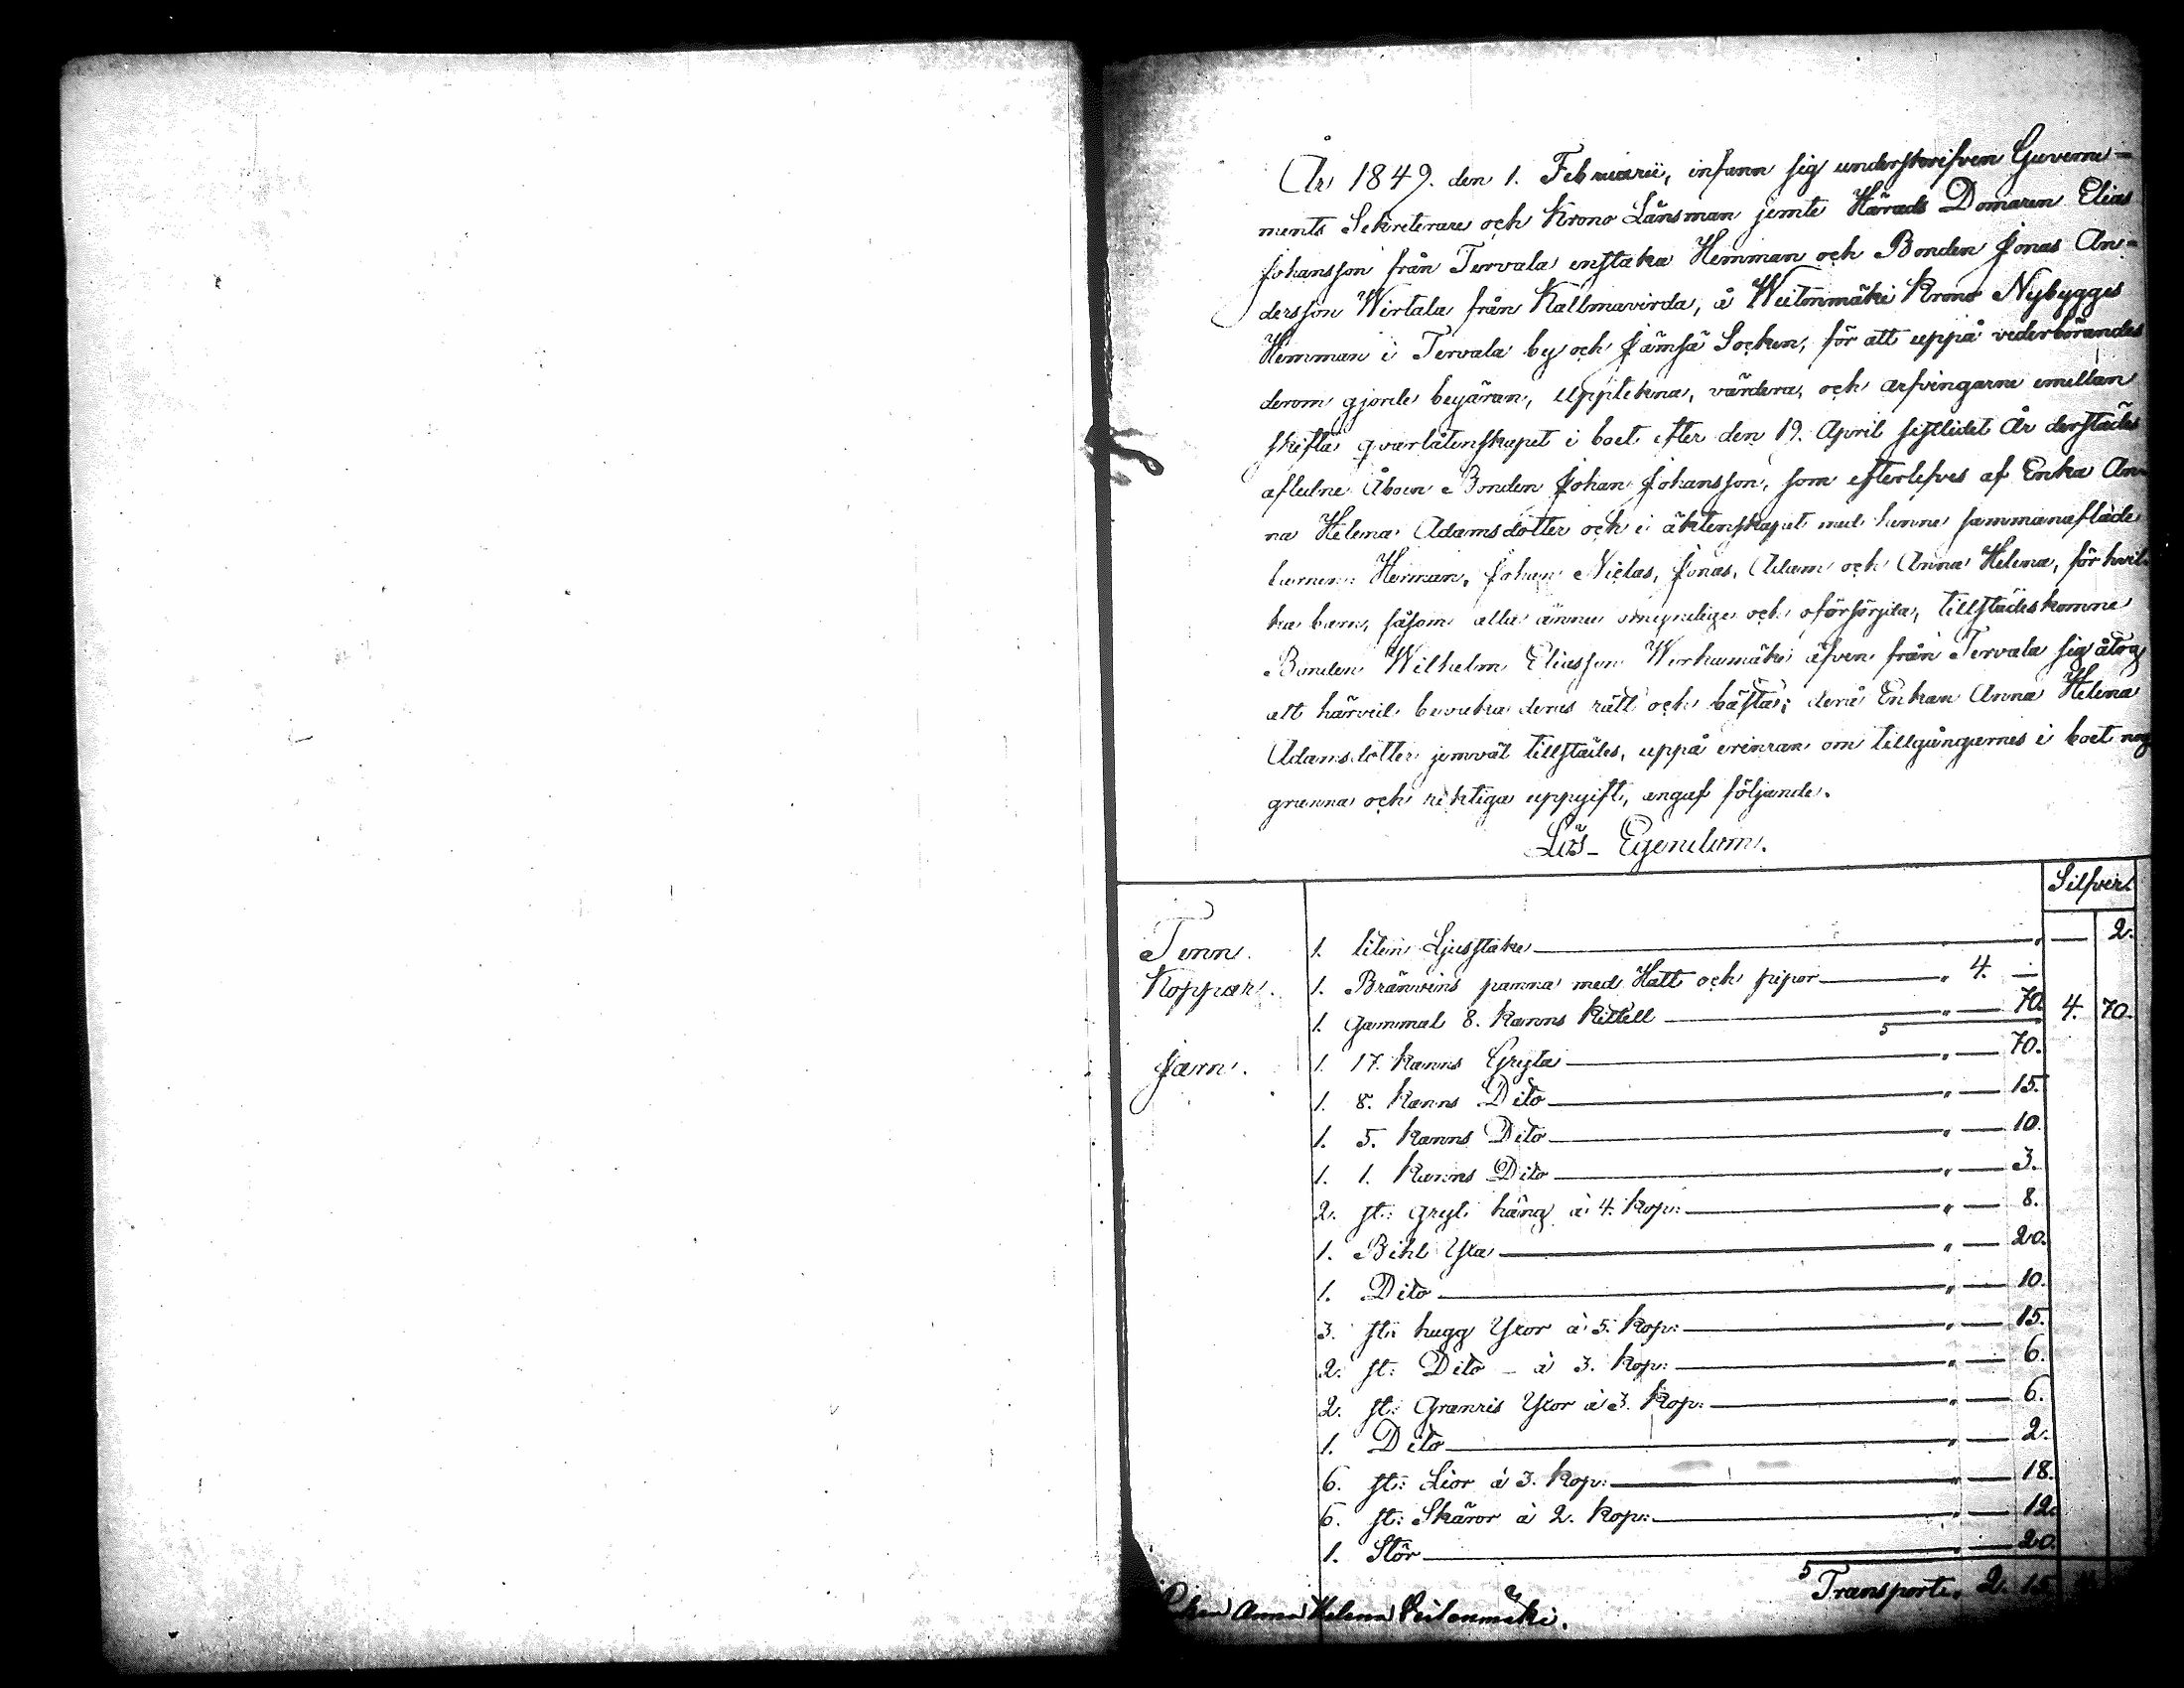 År 1849. den 1. Februarii, infann sig underskrifven Guverne-
ments Sekreterare och Krono Länsman jemte Härads Domaren Elias
Johansson från Tervala enstaka Hemman och Bonden Jonas An-
dersson Wirtala från Kallmavirda, å Weitonmäki Krono Nybygges
Hemman i Tervala by och Jämsä Socken, för att uppå vederbörandes
derom gjorde begäran, uppteckna, värdera, och arfvingarne emellan
skifta qvarlåtenskapet i boet efter den 19. April sistledet År derstädes
aflidne Åboen Bonden Johan Johansson, som efterlefves af Enka An-
na Helena Adamsdotter och i äktenskapet med henne sammanaflade
barnen: Herman, Johan Niclas, Jonas, Adam och Anna Helena, för hvil-
ka barn, såsom alla ännu omyndige och oförsörjda, tillstädeskomne
Bonden Wilhelm Eliasson Workumäki äfven från Tervala sig åtog
att härvid bevaka deras rätt och bästa; derå Enkan Anna Helena
Adamsdotter jemväl tillstädes, uppå erinran om tillgångarnes i boet nog
granna och riktiga uppgift, angaf följande.
Lös-Egendom.
Silfver.
Tenn. 1. liten Ljusstake " — 2.
Koppar. 1. Bränvins panna med Hatt och pipor " 4. —
1. gammal 8. kanns Kittell " — 70. 4. 70.
Jærn. 1. 17. kanns Gryta " — 70.
1. 8. kanns Dito " — 15.
1. 5. kanns Dito " — 10.
1. 1. kanns Dito " — 3.
2. st: gryt häng à 4. kop: " — 8.
1. Bihl Yxa " — 20.
1. Dito " — 10.
3. st: hugg Yxor à 5. kop: " — 15.
2. st: Dito - à 3. kop: " — 6.
2. st: Granris Yxor à 3. kop: " — 6.
1. Dito " — 2.
6. st: Lior à 3. kop: " — 18.
6. st: Skäror à 2. kop: " — 12.
1. Stör " — 20.
Transport. 2. 15
Anna Helena Veitonmäki.